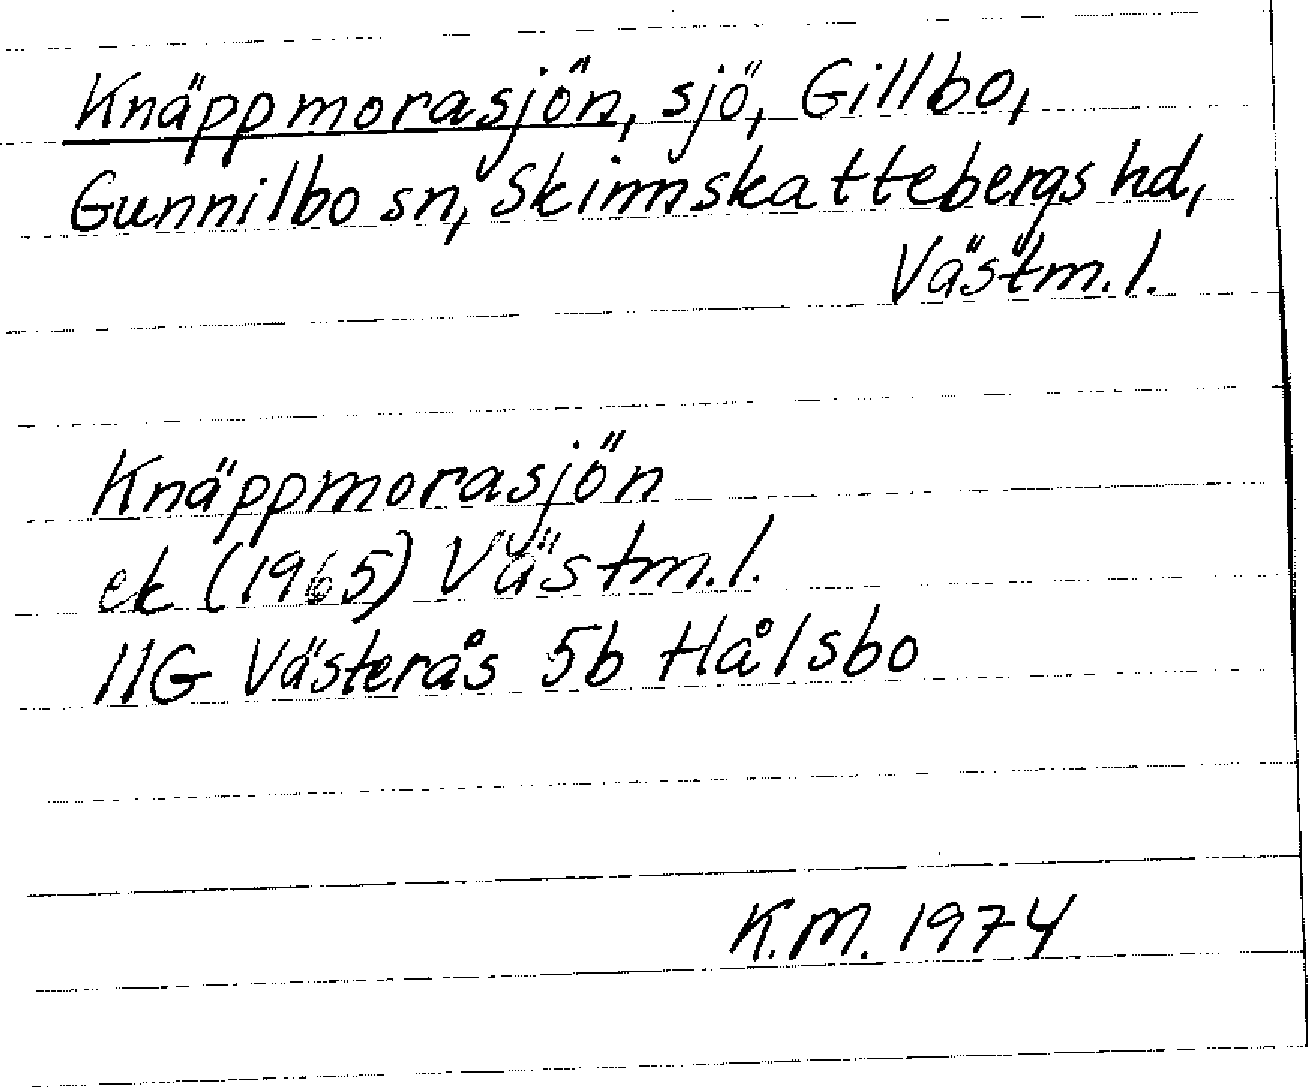 Knäppmorasjön, sjö, Gillbo,
Gunnilbo sn, Skinnskattebergs hd,
Västm.l.
Knäppmorasjön
ek (1965) Västm.l.
11G Västerås 5b Hålsbo
K.M. 1974